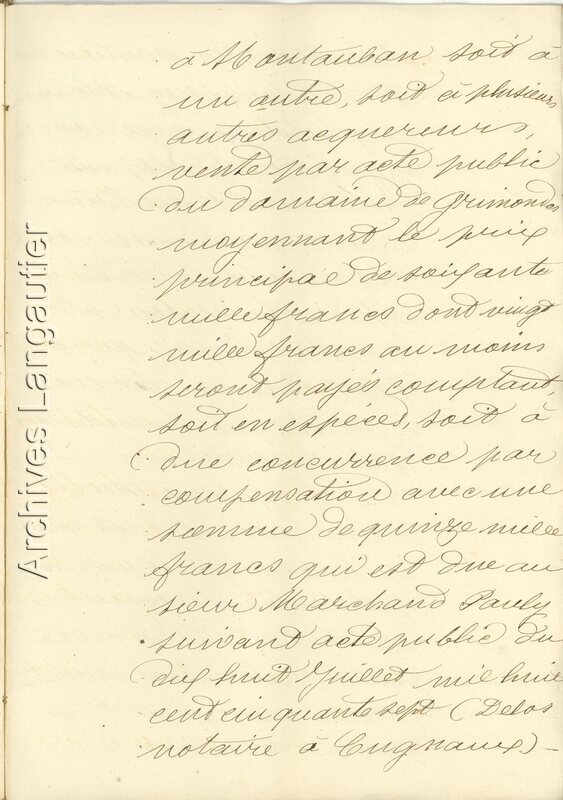 à Montauban soit à
un autre, soit à plusieurs
autres acquereurs,
vente par acte public
du domaine de Grimondes
moyennant le prix
principal de soixante
mille francs dont vingt
mille francs au moins
seront payés comptant,
soit en espéces, soit à
due concurrence par
compensation avec une
somme de quinze mille
francs qui est due au
sieur Marchand Pauly
suivant acte public du
dix huit Juillet mil huit
cent cinquante sept (Delos
notaire à Cugnaux) –
Archives Langautier